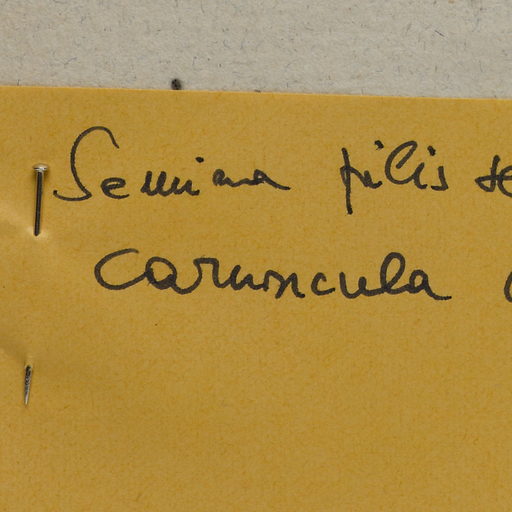 Semina pilis
caruncula